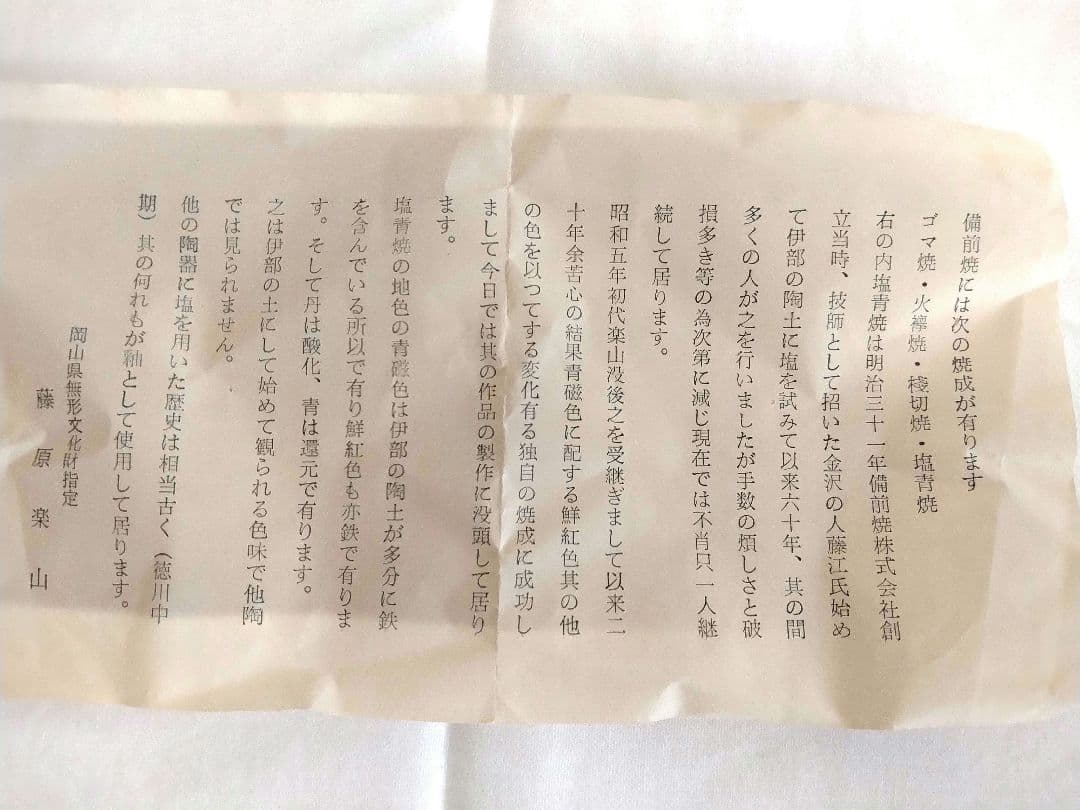 備前焼には次の焼成が有ります
ゴマ焼・火襷焼・棧切焼・塩青焼
右の内塩青焼は明治三十一年備前焼株式会社創
立当時、技師として招いた金沢の人藤江氏始め
て伊部の陶土に塩を試みて以来六十年、其の間
多くの人が之を行いましたが手数の煩しさと破
損多き等の為次第に減じ現在では不肖只一人継
続して居ります。
昭和五年初代楽山没後之を受継ぎまして以来二
十年余苦心の結果青磁色に配する鮮紅色其の他
の色を以つてする変化有る独自の焼成に成功し
まして今日では其の作品の製作に没頭して居り
ます。
塩青焼の地色の青磁色は伊部の陶土が多分に鉄
を含んでいる所以で有り鮮紅色も亦鉄で有りま
す。そして丹は酸化、青は還元で有ります。
之は伊部の土にして始めて観られる色味で他陶
では見られません。
他の陶器に塩を用いた歴史は相当古く（徳川中
期）其の何れもが釉として使用して居ります。
岡山県無形文化財指定
藤原楽山